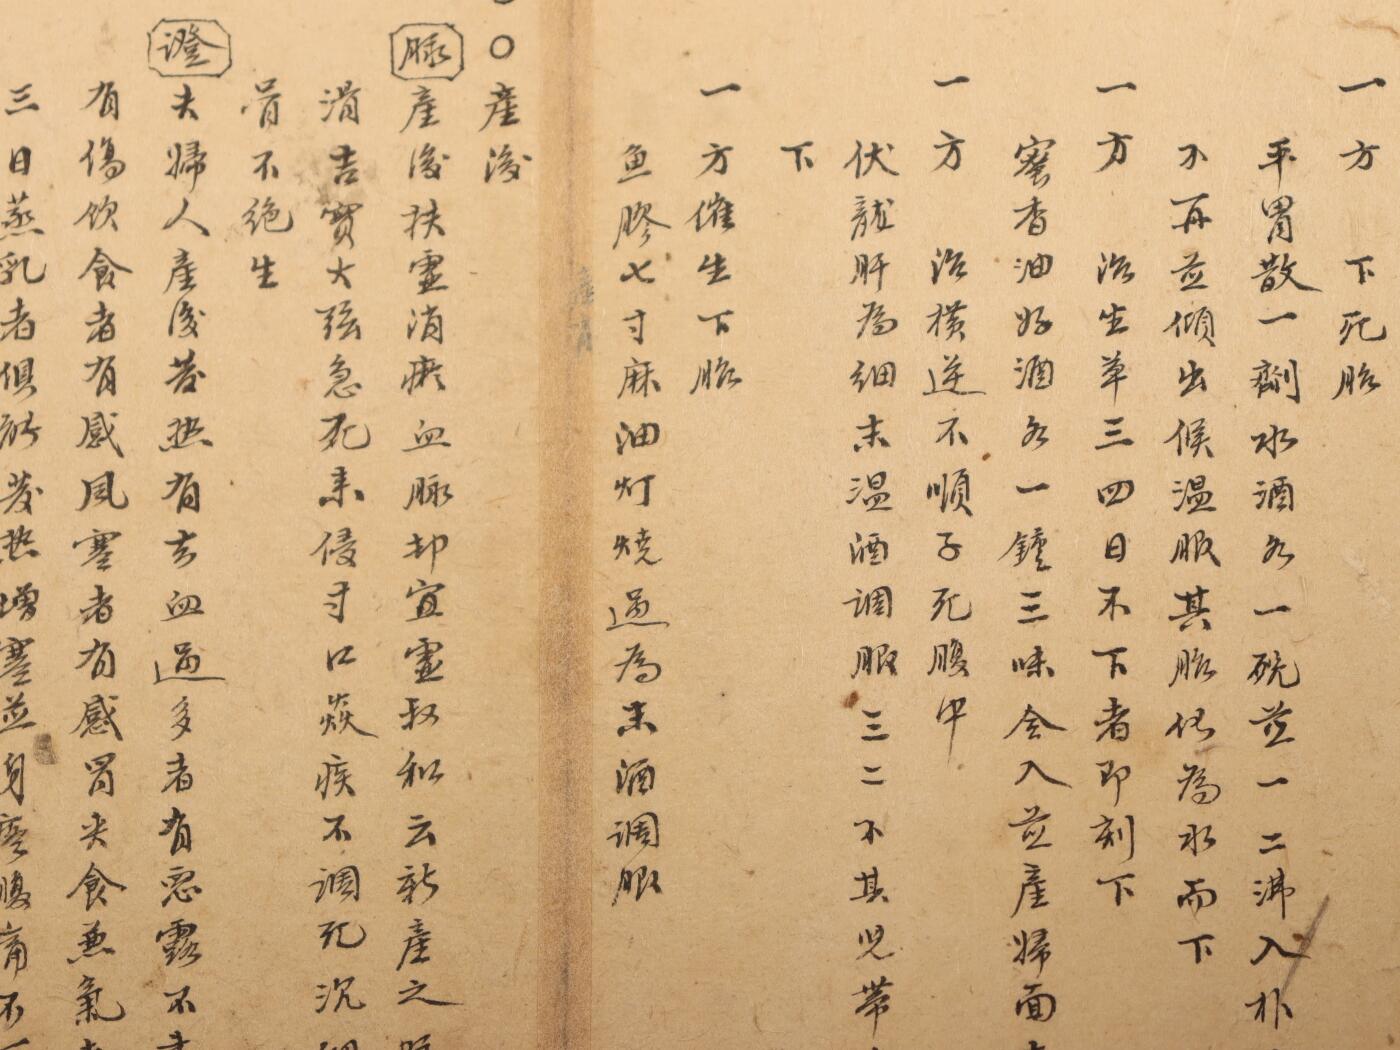 一方　下死胎
平胃散一劑水酒各一碗並一二沸入朴
不再並傾出候温服其胎化為水而下
一方　治生草三四日不下者即刻下
蜜香油好酒各一鍾三味合入並產婦面
一方　治橫逆不順子死腹中
伏龍肝為細末温酒調服三二不其児带
下
一方催生下胎
魚膠七寸麻油灯燒過為末酒調服
○產後
脉 產後扶虛消瘀血脉却宜虛叔和云新產之脉
滑吉實大弦急死来侵寸口焱疾不調死沉細
骨不绝生
證 夫婦人產後發热有去血過多者有惡露不
有傷饮食者有感風寒者有感冒夹食兼氣
三日蒸乳者俱能發热增寒並身疼腹痛不